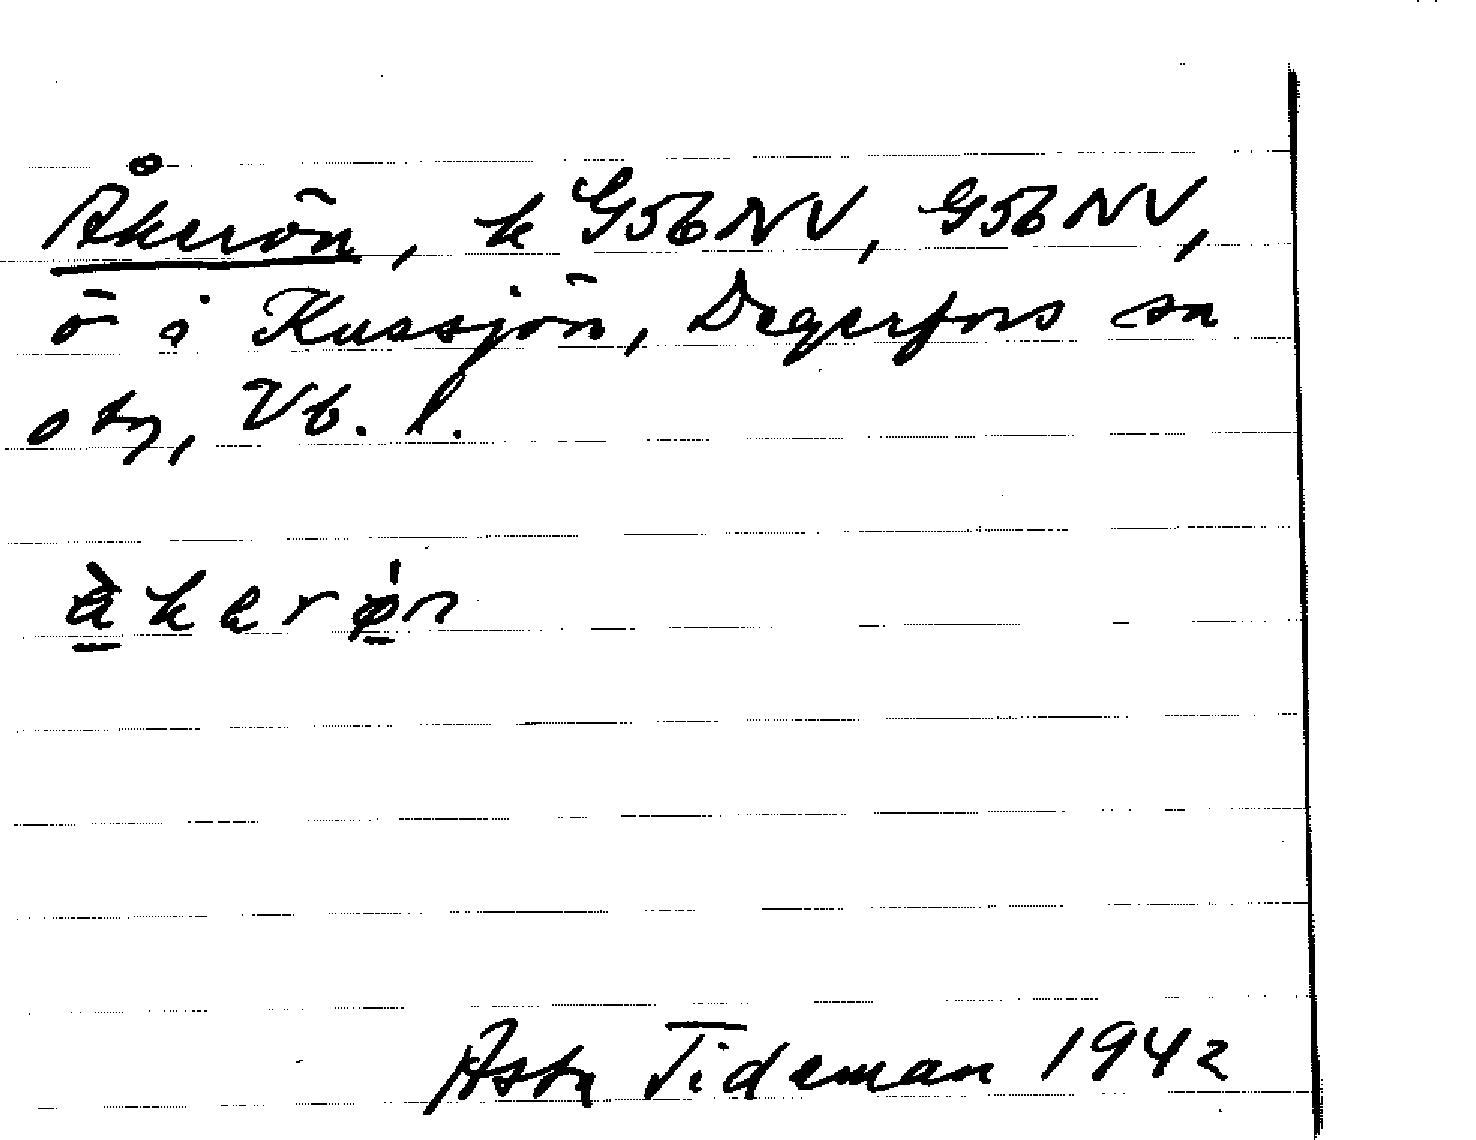 Åkerön, k G56NV, G56NV,
ö i Kussjön, Degerfors sn
o tg, Vb. l.
å̀kerǿn
Asta Tideman 1942